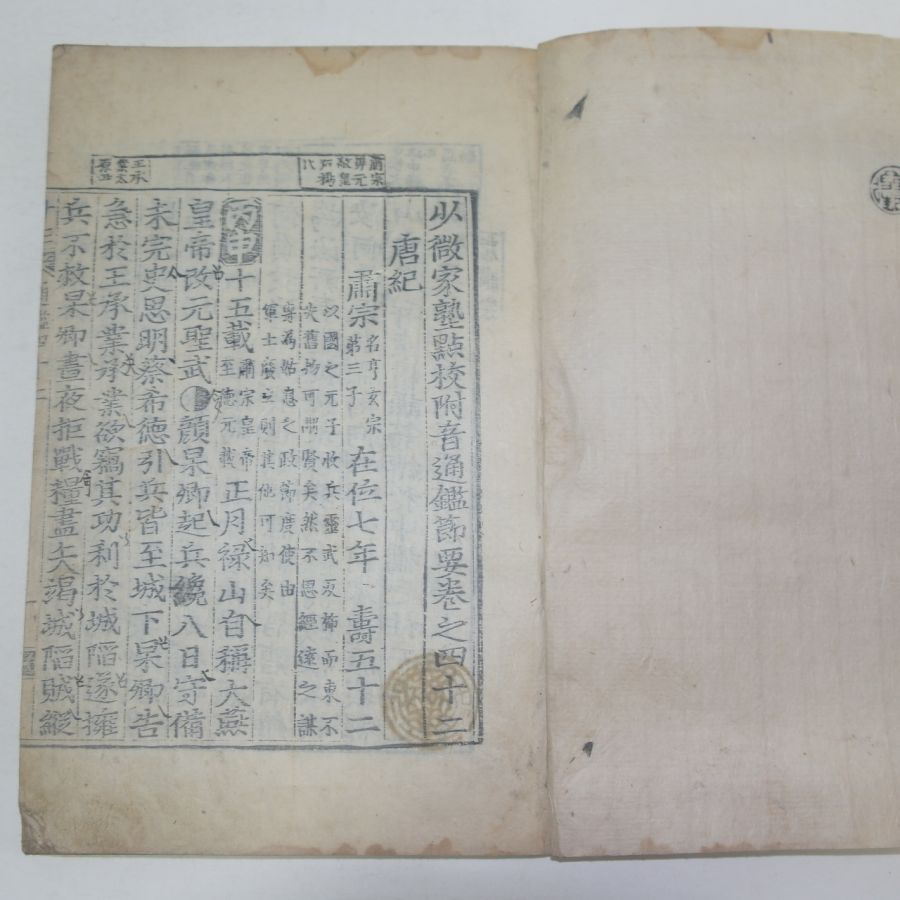 少微家塾點校附音通鑑節要卷之四十二
唐紀
肅宗 名亨玄宗第三子 在位七年 壽五十二
以國之元子收兵靈武反旆而東不
失舊物可謂賢矣然不思經遠之謀
專為姑息之政節度使由
軍士廢立則其他可知矣
丙申十五載 肅宗皇帝至德元載 正月祿山自稱大燕
皇帝改元聖武 顏杲卿起兵纔八日守備
未完史思明蔡希德引兵皆至城下杲卿告
急於王承業承業欲竊其功利於城陷遂擁
兵不救杲卿晝夜拒戰糧盡矢竭城陷賊縱
肅宗
王承
業太